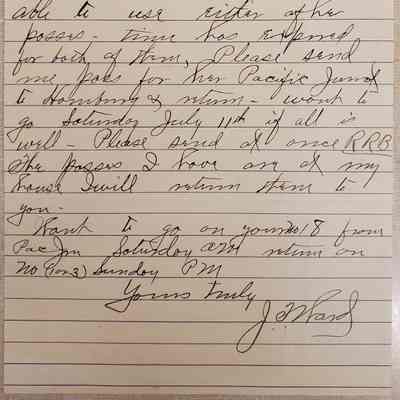 able to use either of her
passes - time has expired
for both of them, Please send
me pass for her Pacific Junct
to Hamburg & return - want to
go Saturday July 11th if all is
well - Please send at once RRB
The passes I have are at my
house I will return them to
you -
Want to go on your No 18 from
Pac Jn Saturday AM return on
No (1 or 3) Sunday PM
Yours truly
J. F. Ward